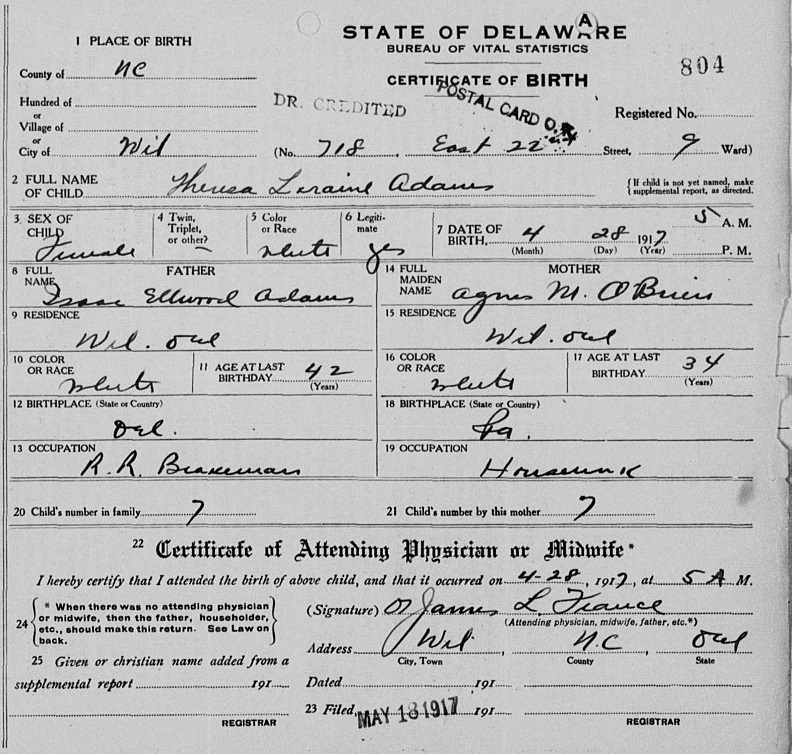 STATE OF DELAWARE
A
BUREAU OF VITAL STATISTICS
CERTIFICATE OF BIRTH
804
1 PLACE OF BIRTH
County of NC
Hundred of
or
Village of
or
City of Wil
DR. CREDITED
POSTAL CARD O.K.
Registered No.
(No. 718, East 22 Street, 9 Ward)
2 FULL NAME OF CHILD Theresa Loraine Adams
{If child is not yet named, make supplemental report, as directed.
3 SEX OF CHILD Female
4 Twin, Triplet, or other?
5 Color or Race White
6 Legitimate yes
7 DATE OF BIRTH, 4 28 1917 5 A. M.
(Month) (Day) (Year) P. M.
8 FULL NAME FATHER
Isaac Ellwood Adams
14 FULL MAIDEN NAME MOTHER
Agnes M. O'Brien
9 RESIDENCE
Wil. Del
15 RESIDENCE
Wil. Del
10 COLOR OR RACE White
11 AGE AT LAST BIRTHDAY 42
(Years)
16 COLOR OR RACE White
17 AGE AT LAST BIRTHDAY 34
(Years)
12 BIRTHPLACE (State or Country)
Del.
18 BIRTHPLACE (State or Country)
Pa.
13 OCCUPATION
R.R. Brakeman
19 OCCUPATION
Housework
20 Child's number in family 7
21 Child's number by this mother 7
22 Certificate of Attending Physician or Midwife*
I hereby certify that I attended the birth of above child, and that it occurred on 4-28, 1917, at 5 A M.
24 {* When there was no attending physician
or midwife, then the father, householder,
etc., should make this return. See Law on
back.
(Signature) James L. France
(Attending physician, midwife, father, etc.*)
Address Wil, N.C, Del
City, Town County State
25 Given or christian name added from a
supplemental report 191
REGISTRAR
Dated 191
23 Filed, MAY 18 1917 191
REGISTRAR